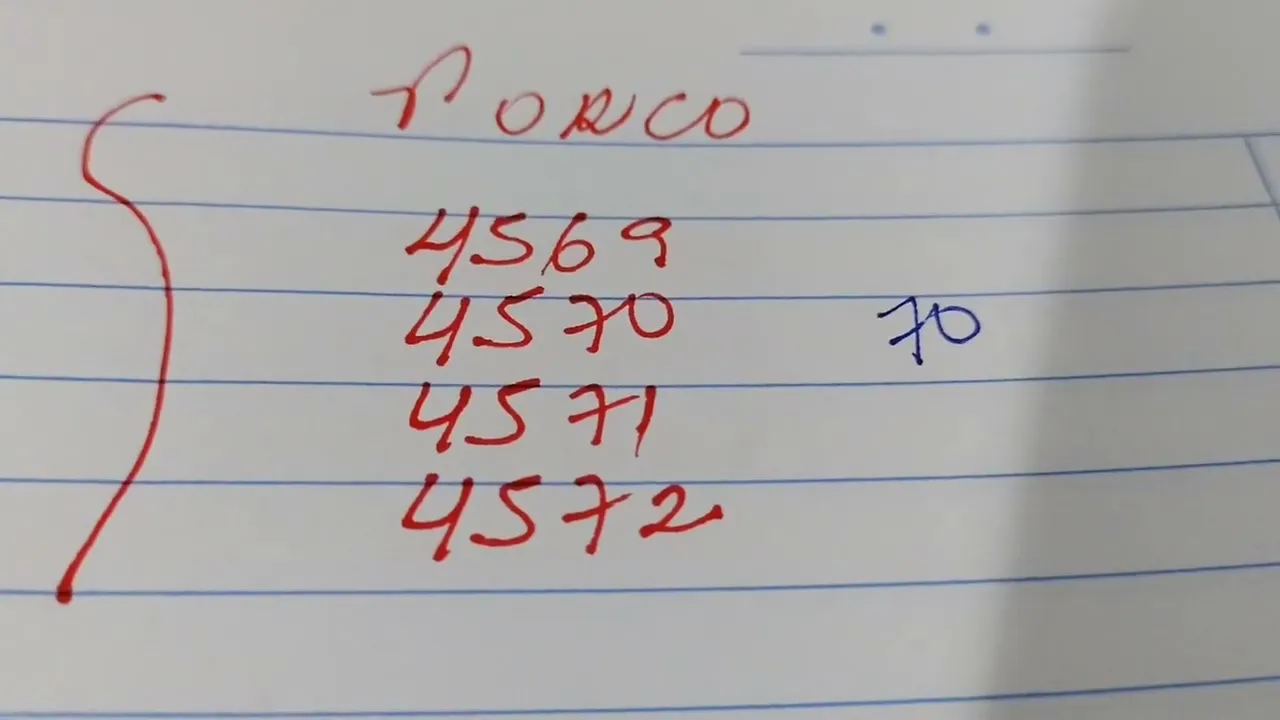 PORCO
4569
4570 70
4571
4572